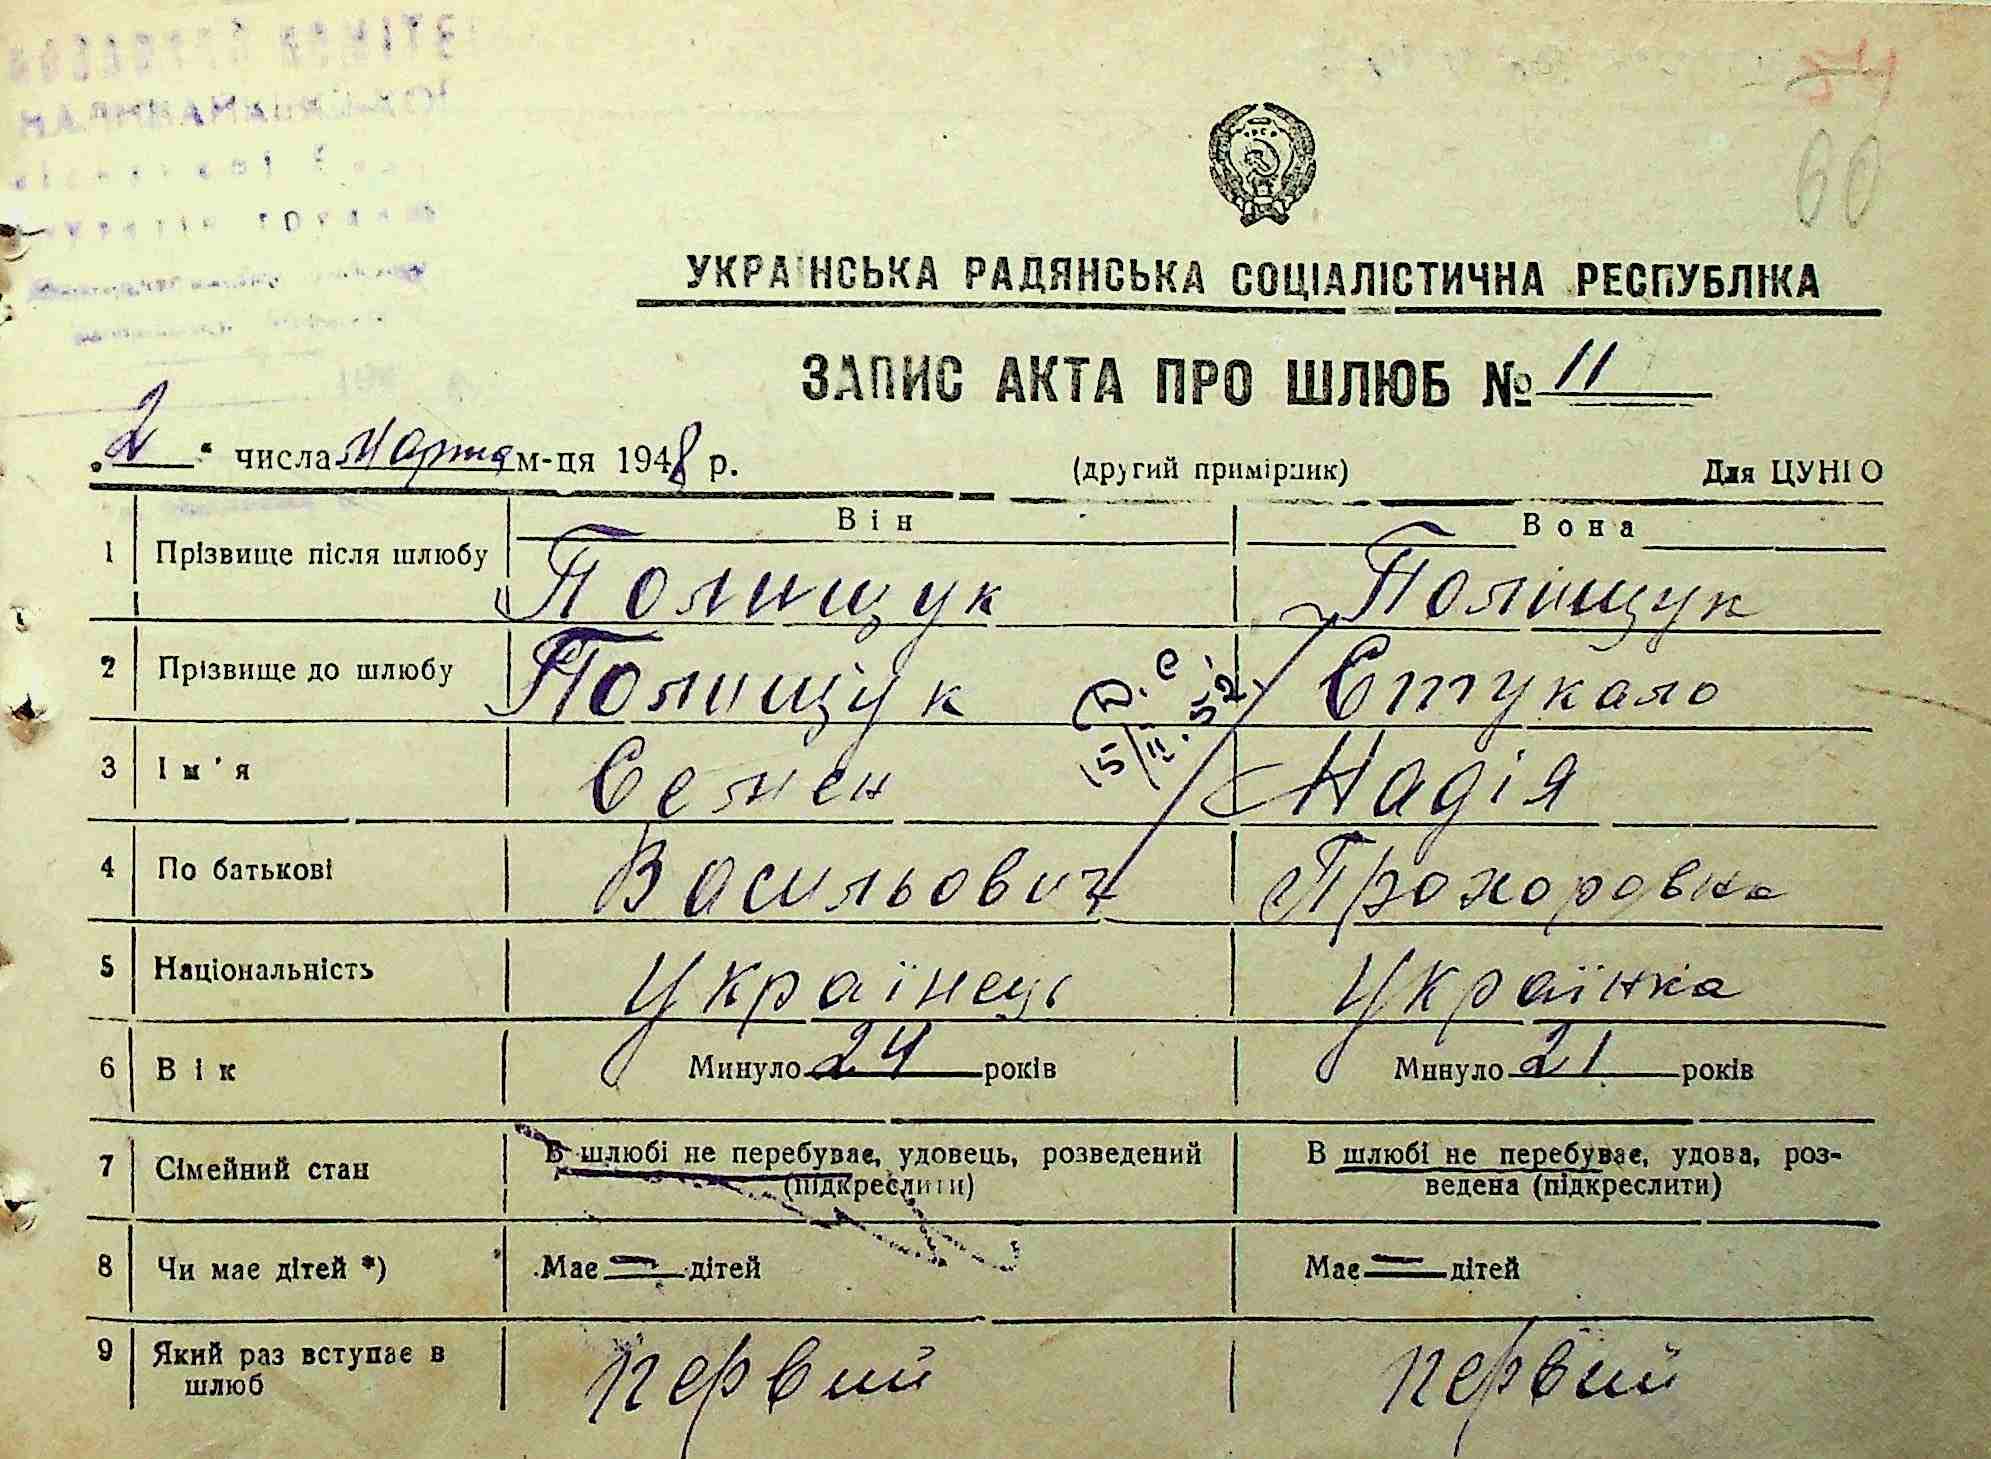 60
УКРАЇНСЬКА РАДЯНСЬКА СОЦІАЛІСТИЧНА РЕСПУБЛІКА
ЗАПИС АКТА ПРО ШЛЮБ № 11
„2“ числа марта м-ця 1948 р. (другий примірник) Для ЦУНГО
Він Вона
1 Прізвище після шлюбу Полищук Поліщук
2 Прізвище до шлюбу Полищук Стукало
15/II.52
3 Ім'я Семен Надія
4 По батькові Васильович Прохоровна
5 Національність Українець Українка
6 Вік Минуло 24 років Минуло 21 років
7 Сімейний стан В шлюбі не перебуває, удовець, розведений (підкреслити) В шлюбі не перебуває, удова, роз-
ведена (підкреслити)
8 Чи має дітей *) Має — дітей Має — дітей
9 Який раз вступає в шлюб первий первий